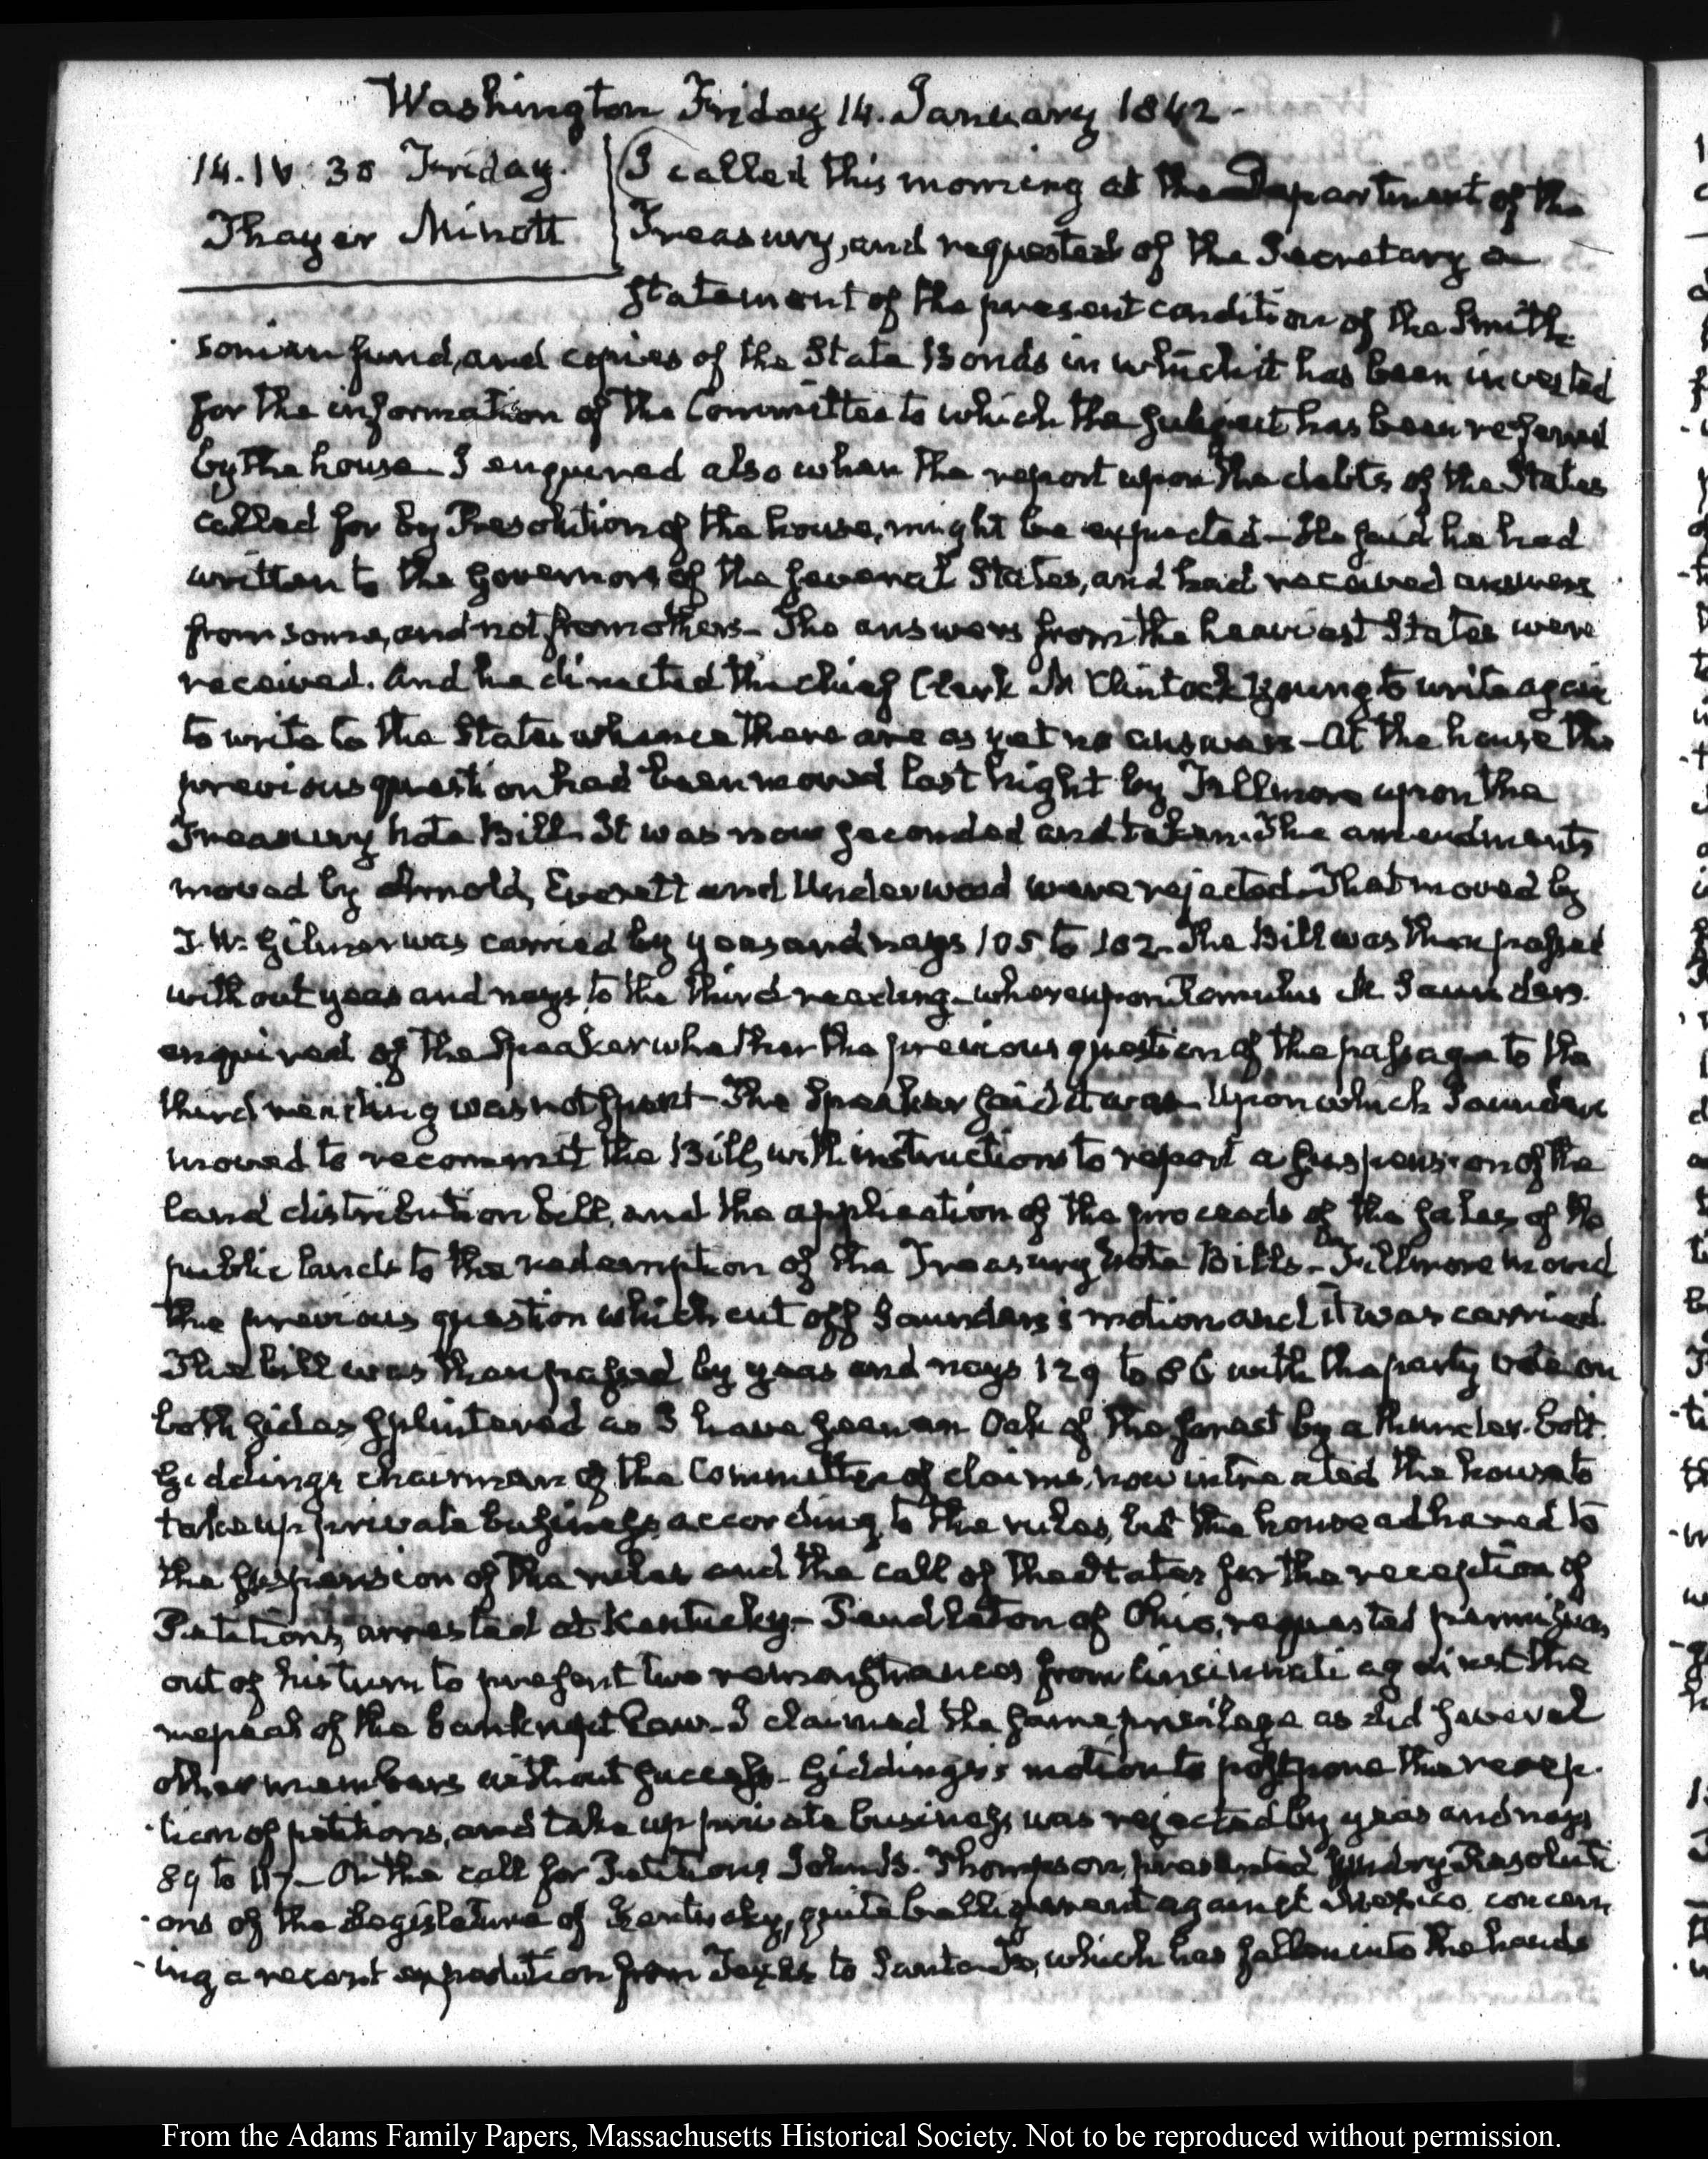 Washington Friday 14. January 1842.
14. IV. 30 Friday.
Thayer Minott
I called this morning at the Department of the
Treasury, and requested of the Secretary a
statement of the present condition of the Smith-
sonian fund, and copies of the State Bonds in which it has been invested
for the information of the Committee to which the subject has been referred
by the house. I enquired also when the report upon the debts of the States
called for by Resolution of the house, might be expected— He said he had
written to the Governors of the several States, and had received answers
from some, and not from others— The answers from the heaviest States were
received. And he directed the chief Clerk McClintock Young to write again
to write to the States whence there are as yet no answers— At the house the
previous question had been moved last night by Fillmore upon the
Treasury note Bill. It was now seconded and taken. The amendments
moved by Arnold, Everett and Underwood were rejected— That moved by
T. W. Gilmer was carried by yeas and nays 105 to 102— The Bill was then passed
without yeas and nays, to the third reading— whereupon Romulus M Saunders
enquired of the Speaker whether the previous question of the passage to the
third reading was not spent— The Speaker said it was— Upon which Saunders
moved to recommit the Bill, with instructions to report a suspension of the
land distribution bill, and the application of the proceeds of the sales of the
public lands to the redemption of the Treasury note Bills— Fillmore moved
the previous question which cut off Saunders's motion and it was carried.
The bill was then passed by yeas and nays 129 to 86 with the party vote on
both sides splintered as I have seen an Oak of the forest by a thunder-bolt.
Giddings chairman of the Committee of claims, now intreated the house to
take up private business, according to the rules, but the house adhered to
the suspension of the rules and the call of the States for the reception of
Petitions, arrested at Kentucky— Pendleton of Ohio, requested permission,
out of his turn to present two remonstrances from Cincinnati against the
repeal of the bankrupt Law— I claimed the same privilege as did several
other members without success— Giddings's motion to postpone the recep-
tion of petitions, and take up private business, was rejected by yeas and nays
89 to 117— On the call for Petitions John B. Thompson, presented sundry Resoluti-
ons of the Legislature of Kentucky, quite belligerent against Mexico, concern
ing a recent expedition from Texas to Santa Fe, which has fallen into the hands
From the Adams Family Papers, Massachusetts Historical Society. Not to be reproduced without permission.